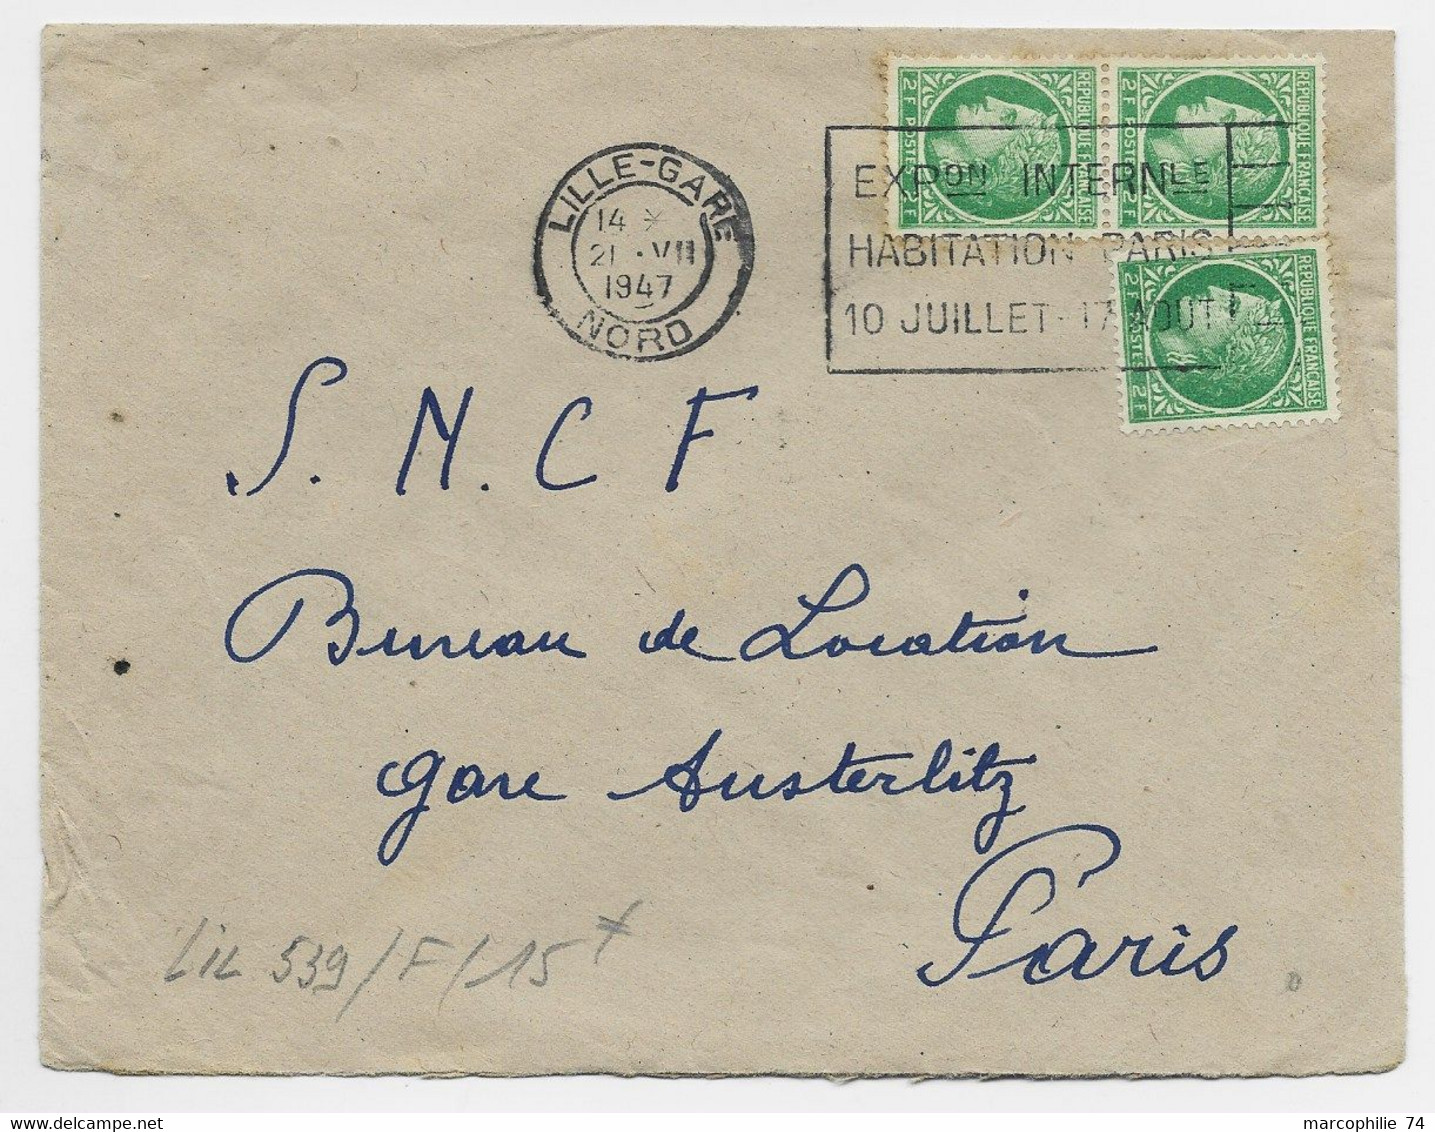 REPUBLIQUE FRANÇAISE
2F POSTES 2F
REPUBLIQUE FRANÇAISE
2F POSTES 2F
REPUBLIQUE FRANÇAISE
2F POSTES 2F
LILLE-GARE
14 *
21 • VII
1947
NORD
EXPON INTERNLE
HABITATION PARIS
10 JUILLET - 17 AOUT
S. N. C F
Bureau de Location
gare Austerlitz
Paris
LIL 539/F/15
marcophilie 74